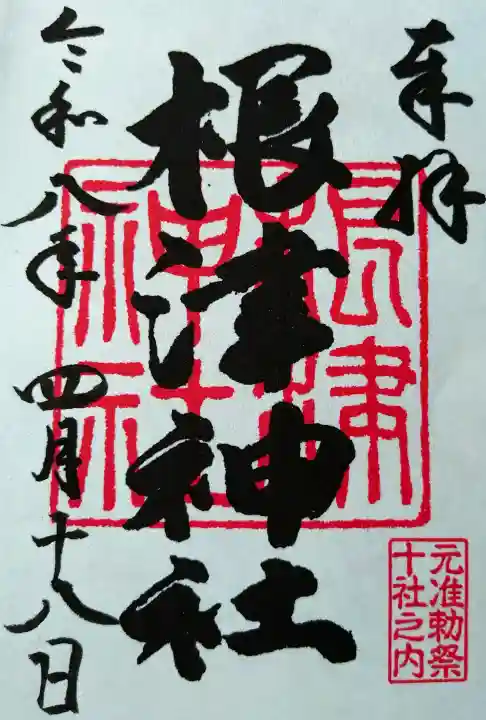 奉拝
根津神社
令和八年四月十八日
根津
神社
元准勅祭
十社之内